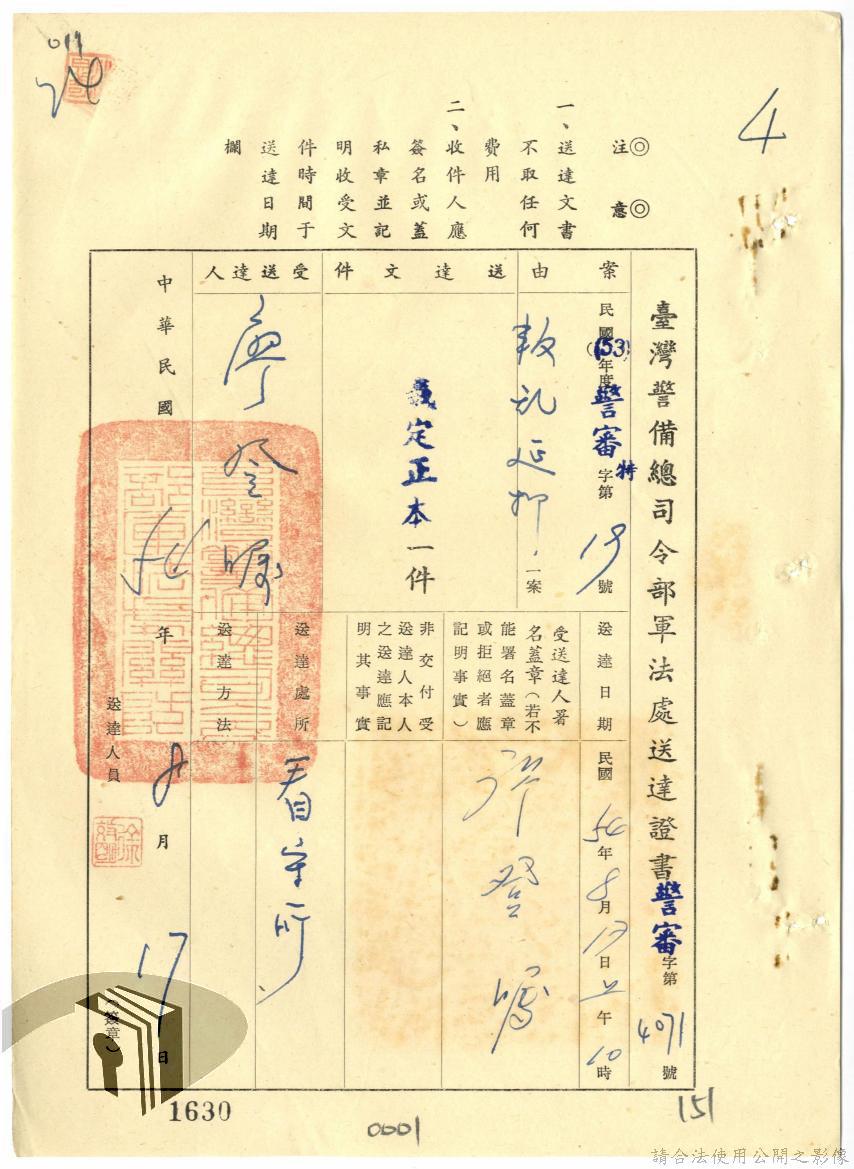 011
24
4
◎注意◎
一、送達文書
不取任何
費用
二、收件人應
簽名或蓋
私章並記
明收受文
件時間于
送達日期
欄
臺灣警備總司令部軍法處送達證書 警審字第4071號
案由
民國(53)年度警審特字第19號
叛乱延押一案
送達文件
裁定正本一件
受送達人
廖登
送達日期
民國54年8月17日上午10時
受送達人署
名蓋章(若不
能署名蓋章
或拒絕者應
記明事實)
登
非交付受
送達人本人
之送達應記
明其事實
送達處所
看守所
送達方法
中華民國54年8月17日
送達人員
(簽章)
1630
0001
151
請合法使用公開之影像